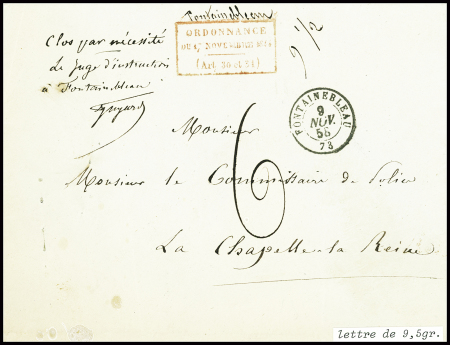 Fontainebleau
ORDONNANCE
DU 17 NOVEMBRE 1844
(Art. 30 et 34)
9 1/2
Clos par nécessité
Le Juge d'instruction
à Fontainebleau
FONTAINEBLEAU
9
NOV.
56
73
6
Monsieur
Monsieur le Commissaire de Police
La Chapelle-la Reine
lettre de 9,5gr.